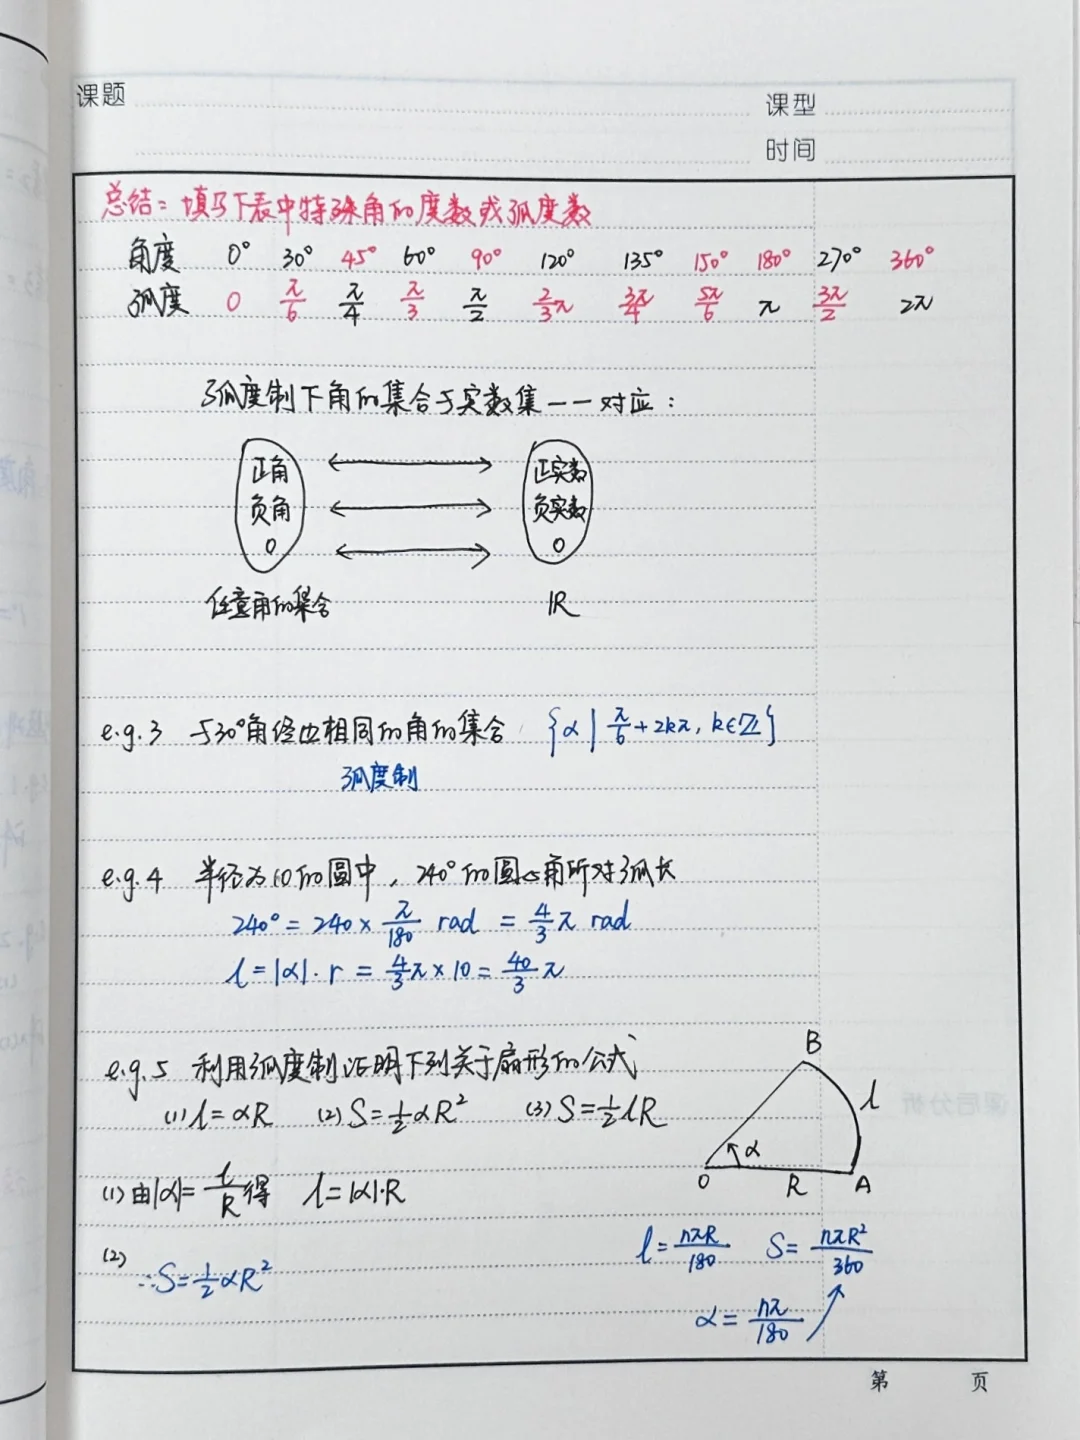 课题
课型
时间
总结：填写下表中特殊角的度数或弧度数
角度 0° 30° 45° 60° 90° 120° 135° 150° 180° 270° 360°
弧度 0 π/6 π/4 π/3 π/2 2/3π 3π/4 5π/6 π 3π/2 2π
弧度制下角的集合与实数集一一对应：
正角 正实数
负角 负实数
0 0
任意角的集合 R
e.g.3 与30°角终边相同的角的集合 {α|π/6+2kπ, k∈Z}
弧度制
e.g.4 半径为10的圆中，240°的圆心角所对弧长
240°=240×π/180 rad =4/3π rad
l=|α|·r=4/3π×10=40/3π
e.g.5 利用弧度制证明下列关于扇形的公式
(1) l=αR (2) S=1/2αR² (3) S=1/2lR
B
l
α
O R A
(1) 由|α|=l/R得 l=|α|·R
(2) ∴S=1/2αR²
l=nπR/180 S=nπR²/360
α=nπ/180
第 页